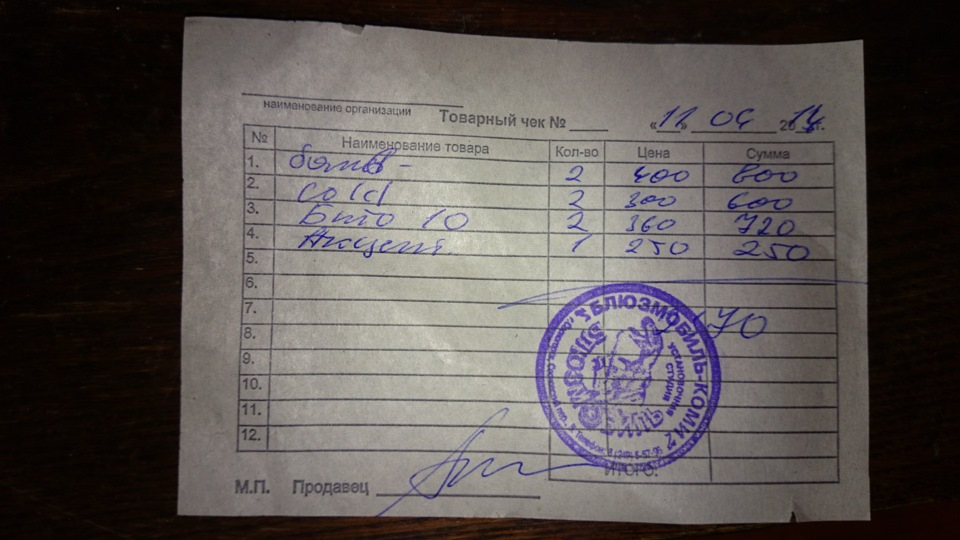 наименование организации
Товарный чек № «11» 04 2014г.
№ Наименование товара Кол-во Цена Сумма
1. 2 400 800
2. Gold 2 300 600
3. Бито 10 2 360 720
4. Акцент 1 250 250
5.
6.
7.
8. 2370
9.
10.
11.
12.
ИТОГО:
БЛЮЗМОБИЛЬ-КОМИ
УСТАНОВОЧНАЯ
СТУДИЯ
М.П. Продавец